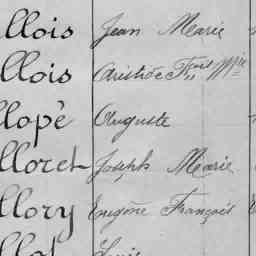 llois Jean Marie
llois Aristide Fçois Mie
llopé Auguste
lloret Joseph Marie
llory Eugène François
llot Louis